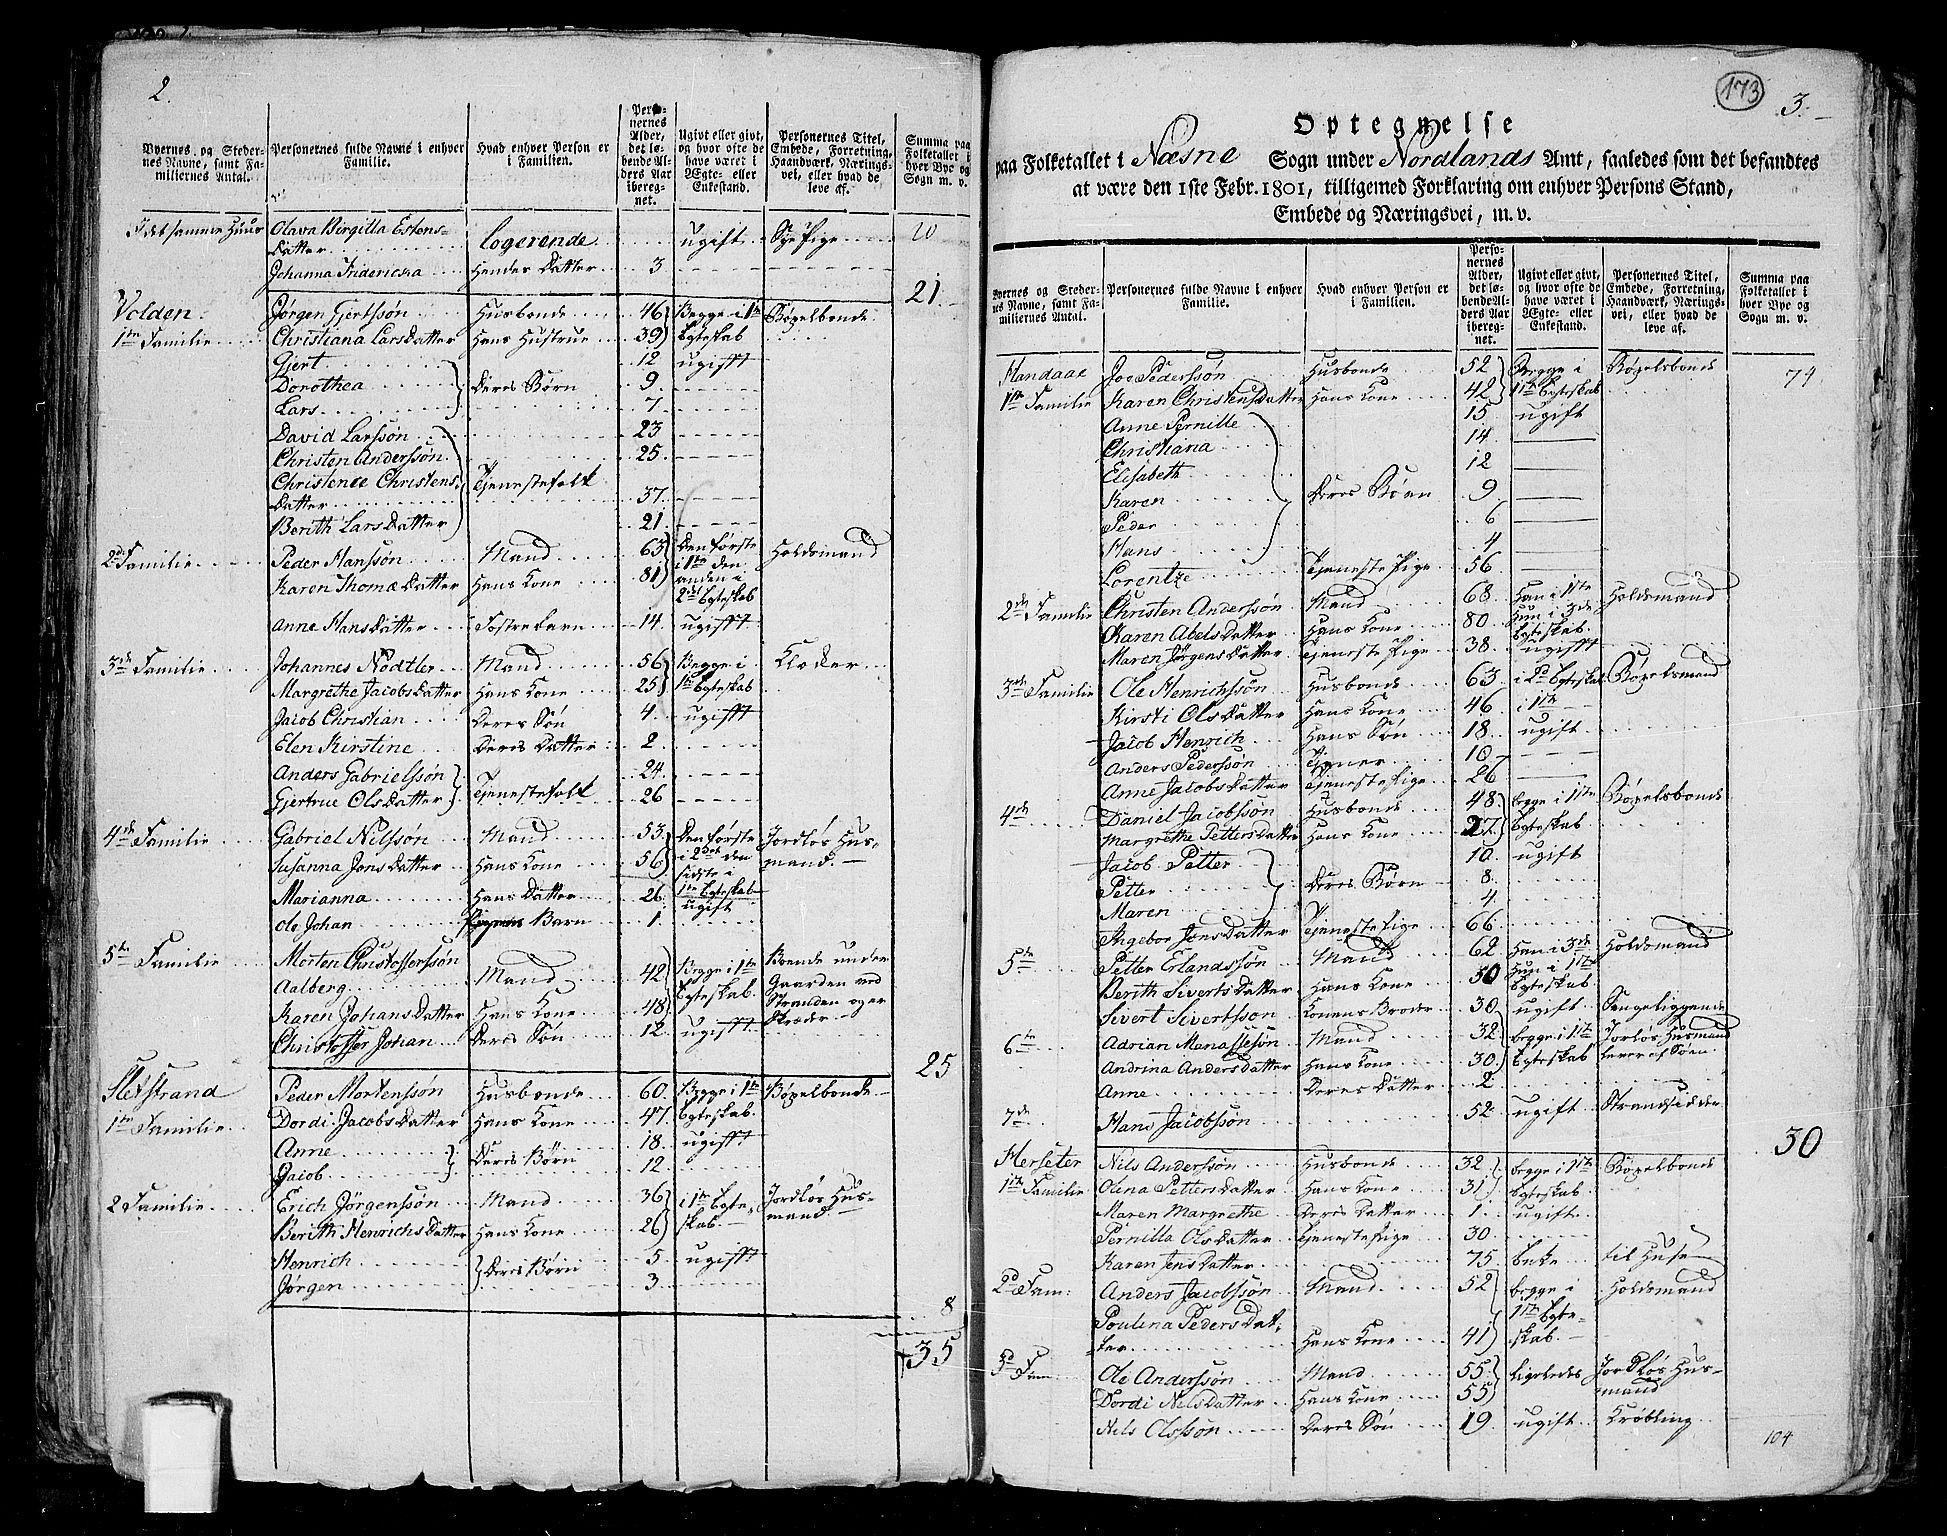 2.
Byernes og Steder-
nes Navne, samt Fa-
miliernes Antal.
Personernes fulde Navne i enhver
Familie.
Hvad enhver Person er
i Familien.
Perso-
nernes
Alder,
det lø-
bende Al-
ders Aar
ibereg-
net.
Ugivt eller givt,
og hvor ofte de
have været i
Ægte- eller
Enkestand.
Personernes Titel,
Embede, Forretning,
Haandværk, Nærings-
vei, eller hvad de
leve af.
Summa paa
Folketallet i
hver Bye og
Sogn m. v.
I det samme Huus Olava Birgitta Estens-
Datter logerende ugift Sye Pige 20
Johanna Fridericha Hendes Datter 3
21.
Volden. Jørgen Gjertssøn Husbonde 46 Begge i 1te Bøxelbonde
1te Familie Christiana LarsDatter Hans Hustrue 39 Egteskab
Gjert 12 ugifft
Dorothea Deres Børn 9
Lars 7
David Larssøn 23
Christen Anderssøn 25
Christence Christens- Tjenestefolk
Datter 37
Berith LarsDatter 21
2den Familie Peder Hanssøn Mand 63 Den første Holdsmand
Karen ThomæDatter Hans Kone 81 i 1te den
anden i
2det Egteskab
Anne HansDatter Fosterbarn 14 ugifft
3die Familie Johannes Nodtler Mand 56 Begge i
Margrethe JacobsDatter Hans Kone 25 1te Egteskab
Jacob Christian Deres Søn 4 ugifft
Elen Kirstine Deres Datter 2
Anders Gabrielssøn Tjenestefolk 24
Gjertrue OlsDatter 26
4de Familie Gabriel Nilssøn Mand 53 Den første Jordløs Hus-
Susanna JonsDatter Hans Kone 56 i 2det den mand.
sidste i
Marianna Hans Datter 26 1te Egteskab
ugift
Ole Johan Barn 1
5te Familie Morten Christofferssøn
Aalberg Mand 42 Begge i 1te Boende under
Gaarden ved
Karen JohansDatter Hans Kone 48 Egteskab Stranden og er
Christoffer Johan Deres Søn 12 ugifft
25
Sletstrand Peder Mortenssøn Husbonde 60 Begge i 1te Bøxelbonde
1te Familie Dordi JacobsDatter Hans Kone 47 Egteskab
Anne Deres Børn 18 ugifft
Jacob 12
2 Familie Erich Jørgenssøn Mand 36 i 1te Egte- Jordløs Hus-
Berith HenrichsDatter Hans Kone 26 skab mand.
Henrich Deres Børn 5 ugifft
Jørgen 3
8
35
173
3.
Optegnelse
paa Folketallet i Næsne Sogn under Nordlands Amt, saaledes som det befandtes
at være den 1ste Febr. 1801, tilligemed Forklaring om enhver Persons Stand,
Embede og Næringsvei, m. v.
Byernes og Steder-
nes Navne, samt Fa-
miliernes Antal.
Personernes fulde Navne i enhver
Familie.
Hvad enhver Person er
i Familien.
Perso-
nernes
Alder,
det lø-
bende Al-
ders Aar
ibereg-
net.
Ugivt eller givt,
og hvor ofte de
have været i
Ægte- eller
Enkestand.
Personernes Titel,
Embede, Forretning,
Haandværk, Nærings-
vei, eller hvad de
leve af.
Summa paa
Folketallet i
hver Bye og
Sogn m. v.
Handaae Joe Pederssøn Husbonde 52 Begge i Bøxelsbonde 74
1ste Familie Karen ChristensDatter Hans Kone 42 1ste Egteskab
Anne Pernille 15 ugift
Christiana 14
Elisabeth 12
Karen Deres Børn 9
Peder 6
Hans 4
Lorentze Tjeneste Pige 56
2de Familie Christen Anderssøn Mand 68 Han i 1te Holdsmand
Karen AbelsDatter Hans Kone 80 Hun i 3de
Egteskab
Maren JørgensDatter Tjeneste Pige 38 ugifft
3de Familie Ole Henrichssøn Husbonde 63 i 2d Egteskab Bøxelsmand
Kirsti OlsDatter Hans Kone 46 i 1te
Jacob Henrich Hans Søn 18 ugift
Anders Pederssøn Tjener 10
Anne JacobsDatter Tjeneste Pige 26
4de Daniel Jacobssøn Husbonde 48 begge i 1te Bøxelsbonde
Margrethe PettersDatter Hans Kone 27 Egteskab
Jacob Petter 10 ugift
Petter Deres Børn 8
Maren 4
Ingebor JonsDatter Tjenestepige 66
5te Petter Erlandssøn Mand 62 Han i 3de Holdsmand
Berith SivertsDatter Hans Kone 50 Hun i 1te
Egteskab
Sivert Sivertsson Konens Broder 30 ugift Sengeliggende
6te Adrian Manassesøn Mand 32 begge i 1te Jorløs Husmand
Andrina AndersDatter Hans Kone 30 Egteskab lever af Søen
Anne Deres Datter 2
7de Hans Jacobssøn 52 ugift Strandsidder
30
Herseter Nils Anderssøn Husbonde 32 begge i 1te Bøxelbonde
1te Familie Olina PettersDatter Hans Kone 31 Egteskab
Maren Margrethe Deres Datter 1 ugift
Pernilla OlsDatter Tjenestepige 30
Karen JensDatter 75 Enke til Huse
2d Fam: Anders Jacobssøn Mand 52 begge i Holdsmand
Poulina PedersDat- 1te Egte-
ter Hans Kone 41 skab.
3d Fam Ole Anderssøn Mand 55 ligeledes Jordløs Hus-
Dordi NilsDatter Hans Kone 55 mand
Nils Olssøn Deres Søn 19 ugift Krøbling
104